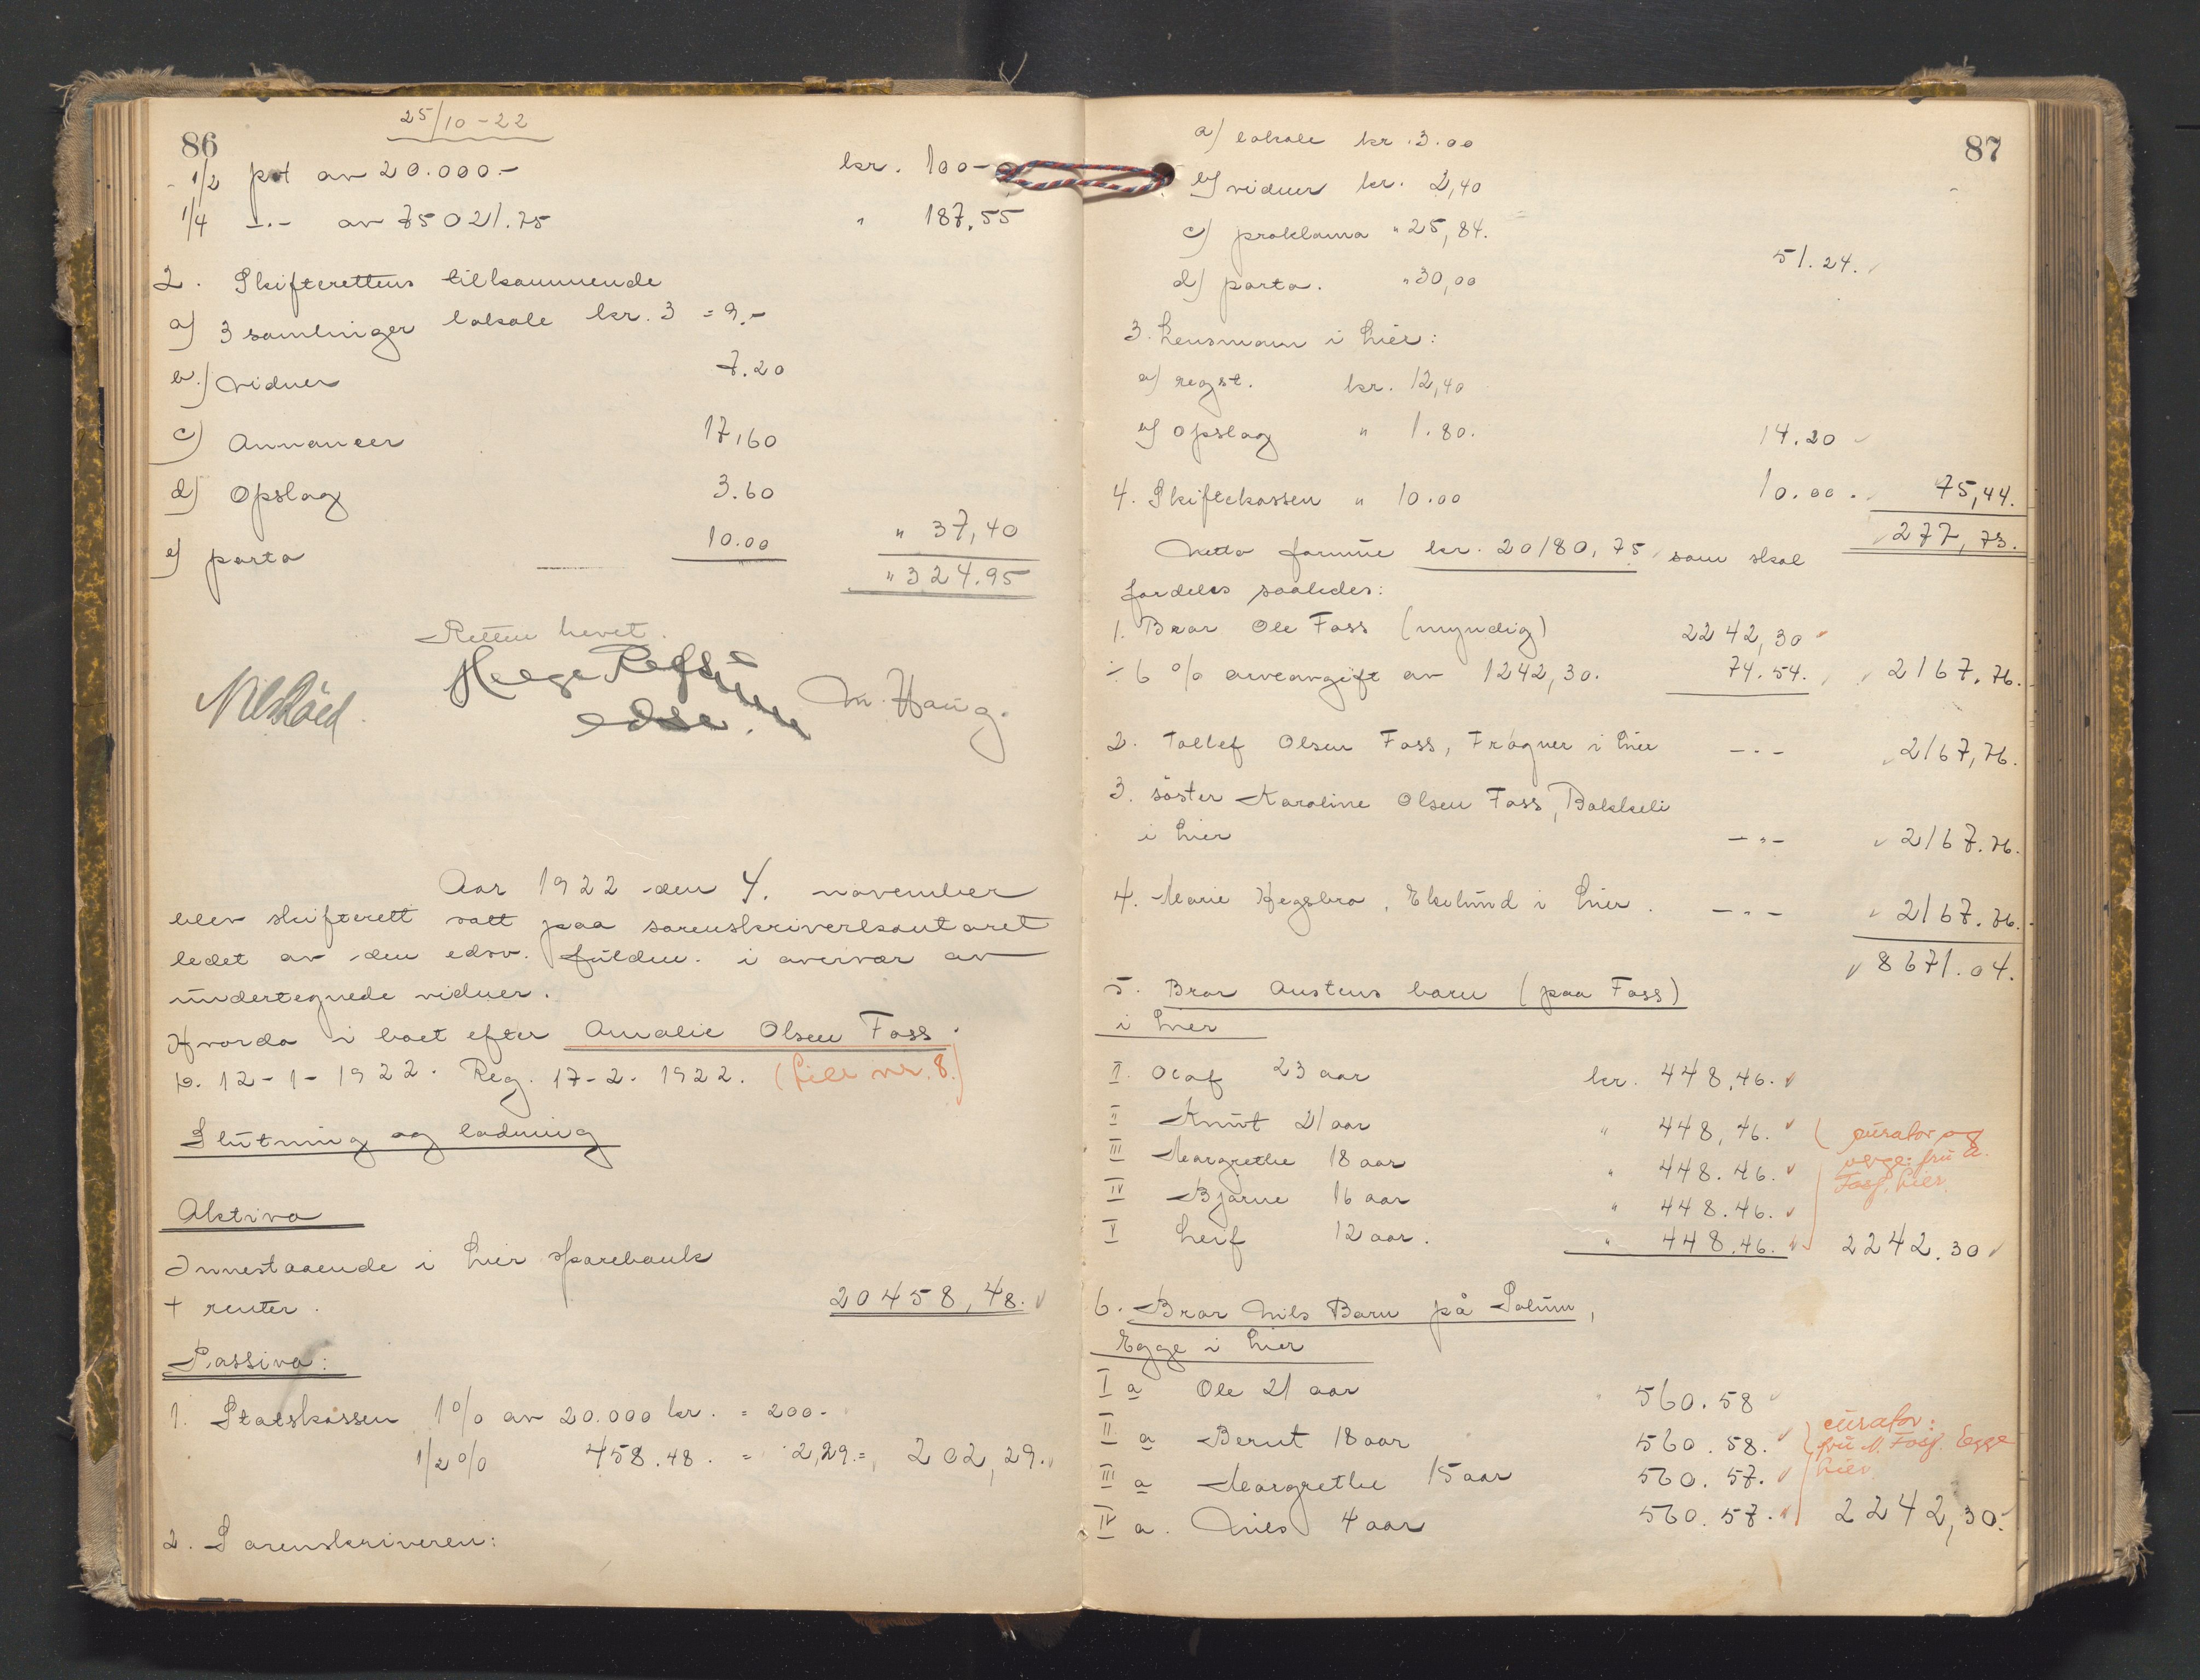 86
25/10-22
1/2 pct av 20.000.- kr. 100-
1/4 -.- av 75021.75 " 187.55
2. Skifterettens tilkommende
a) 3 samlinger lokale kr. 3 = 9.-
b.) vidner 7.20
c) Annoncer 17,60
d) Opslag 3.60
e) porto 10.00 " 37,40
" 324.95
Retten hevet.
M. Haug.
Aar 1922 den 4. november
blev skifterett satt paa sorenskriverkontoret
ledet av den edsv. fuldm. i overvær av
undertegnede vidner.
Hvorda i boet efter Amalie Olsen Foss.
D. 12-1-1922. Reg. 17-2-1922. (Lier nr. 8.)
Slutning og lodning
Aktiva
Innestaaende i Lier sparebank
+ renter. 20458,48.
Passiva:
1. Statskassen 1% av 20.000 kr. = 200-
1/2% 458.48. = 2,29 = 202,29.
2. Sorenskriveren:
87
a) lokale kr. 3.00
b) vidner kr. 2,40
c) proklama " 25,84.
d) porto. " 30,00
51.24.
3. Lensmann i Lier:
a) regst. kr. 12,40
b) opslag " 1.80.
14.20
4. Skiftekassen " 10.00 10.00. 75,44.
277,73.
Netto formue kr. 20180,75 som skal
fordeles saaledes:
1. Bror Ole Foss (myndig) 2242,30
÷ 6% arveavgift av 1242,30. 74.54. 2167.76.
2. Tollef Olsen Foss, Frogner i Lier -.- 2167,76.
3. söster Karoline Olsen Foss, Bakkeli
i Lier -"- 2167.76.
4. Marie Hegsbro, Ekelund i Lier. -.- 2167.76.
8671.04.
5. Bror Austens barn (paa Foss)
i Lier
I. Olaf 23 aar kr. 448.46.
II Knut 21 aar " 448,46.
III Margrethe 18 aar " 448.46.
IV Bjarne 16 aar " 448.46.
V Leif 12 aar. " 448.46. 2242.30
curator og
verge: fru A.
Foss, Lier
6. Bror Nils Barn på Solum,
Egge i Lier
I a Ole 21 aar " 560.58
II a Bernt 18 aar 560.58.
III a Margrethe 15 aar 560.57.
IV a. Nils 4 aar 560.57. 2242,30.
curator:
fru N. Foss. Egge
Lier